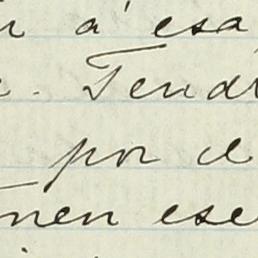 á esa
. Tend
por e
nen ese